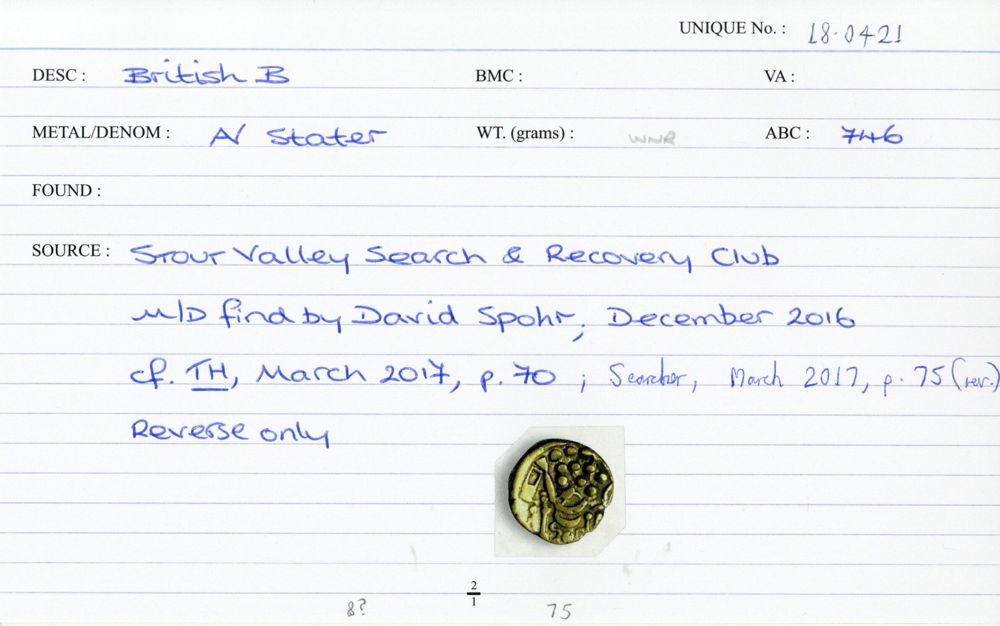 UNIQUE No. : 18.0421
DESC : British B BMC : VA :
METAL/DENOM : A/ Stater WT. (grams) : WNR ABC : 746
FOUND :
SOURCE : Stour Valley Search & Recovery Club
M/D find by David Spohr, December 2016
cf. TH, March 2017, p. 70 ; Searcher, March 2017, p. 75 (rev.)
Reverse only
2
1
8? 75